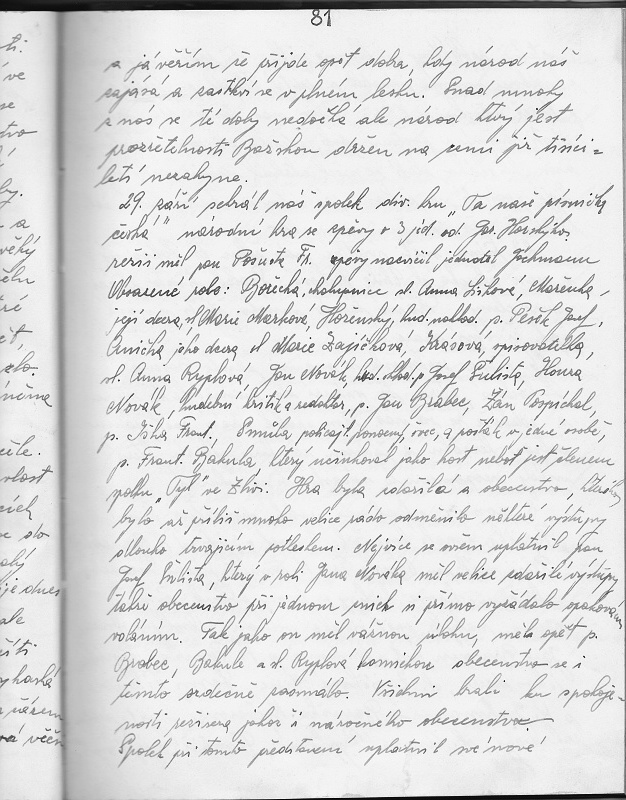 81
a já věřím že přijde opět doba, kdy národ náš
zajává a zaskví se v plném lesku. Snad mnohý
z nás se té doby nedočká ale národ který jest
prozřetelností Božskou držen na zemi již tisíci=
letí nezahyne.
29. září sehrál náš spolek div. hru "Ta naše písnička
česká" národní hra se zpěvy o 3 jed. od Jos. Horského.
režii měl pan Pošusta Fr. zpěvy nacvičil jednatel Jochmann
Obsazené role: Bořecká, chalupnice sl. Anna Lišková, Mařenka,
její dcera, sl. Marie Marková, Hořenský, hud. naklad. p. Pešek Josef,
Anička jeho dcera sl Marie Zajíčková, Krasová, spisovatelka,
sl. Anna Ryplová, Jan Novák, hud. sklad. p Josef Šulista, Honza
Novák, hudební kritik a redaktor, p. Jan Brabec, Žán Pospíchal,
p. Jiha Frant., Smůla policajt. ponocný, švec, a pošťák v jedné osobě,
p. Frant. Bakula, který účinkoval jako host neboť jest členem
spolku "Tyl" ve Zlivi. Hra byla zdařilá a obecenstvo,
bylo až příliš mnoho velice rádo odměnilo některé výstupy
dlouho trvajícím potleskem. Nejvíce se ovšem uplatnil pan
Josef Šulista, který v roli Jana Nováka měl velice zdařilé výstupy
takže obecenstvo při jednom z nich si přímo vyžádalo opakování
voláním. Tak jako on měl vážnou úlohu, měla opět p.
Brabec, Bakule a sl. Ryplová komickou obecenstvo se i
těmto srdečně zasmálo. Všichni hráli ku spokoje=
nosti režisera jakož i náročného obecenstva.
Spolek při tomto představení uplatnil své nové